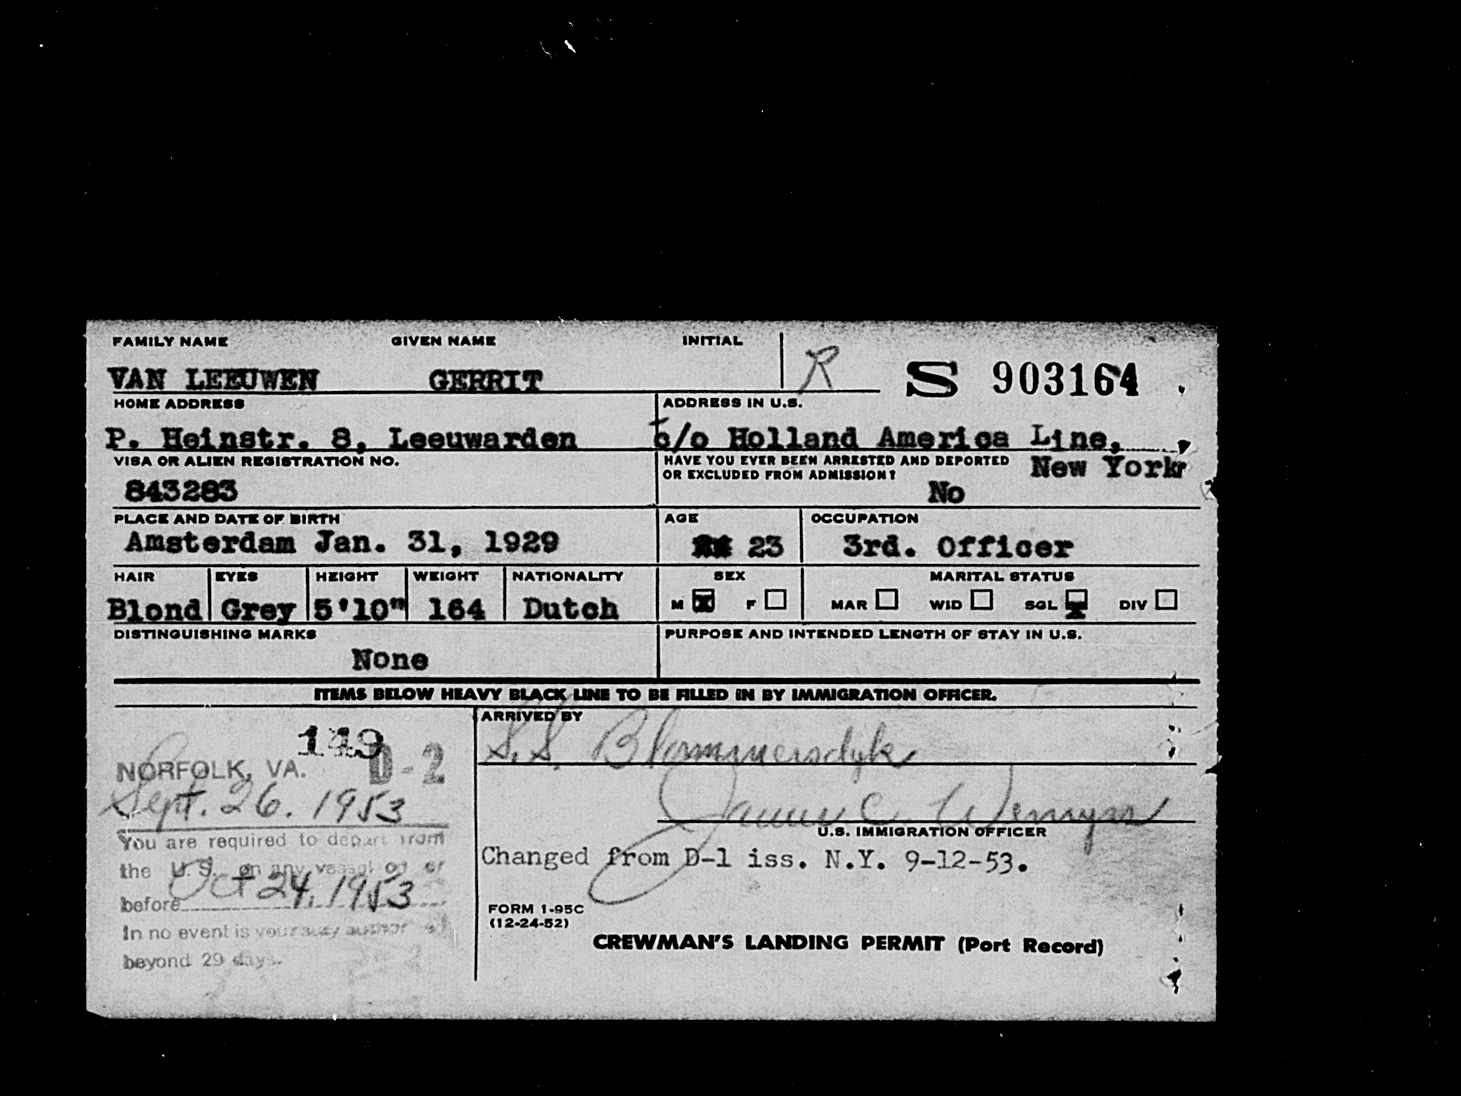 FAMILY NAME GIVEN NAME INITIAL
VAN LEEUWEN GERRIT R S 903164
HOME ADDRESS ADDRESS IN U.S.
P. Heinstr. 8, Leeuwarden c/o Holland America Line,
VISA OR ALIEN REGISTRATION NO. HAVE YOU EVER BEEN ARRESTED AND DEPORTED New York
OR EXCLUDED FROM ADMISSION?
843283 No
PLACE AND DATE OF BIRTH AGE OCCUPATION
Amsterdam Jan. 31, 1929 23 3rd. Officer
HAIR EYES HEIGHT WEIGHT NATIONALITY SEX MARITAL STATUS
Blond Grey 5'10" 164 Dutch M X F MAR WID SGL X DIV
DISTINGUISHING MARKS PURPOSE AND INTENDED LENGTH OF STAY IN U.S.
None
ITEMS BELOW HEAVY BLACK LINE TO BE FILLED IN BY IMMIGRATION OFFICER.
ARRIVED BY
149 S.S. Blommersdyk
NORFOLK, VA. D-2
Sept. 26. 1953 James C. Wemyss
U.S. IMMIGRATION OFFICER
You are required to depart from
the U.S. on any vessel on or
Changed from D-1 iss. N.Y. 9-12-53.
before Oct 24, 1953
In no event is your stay
beyond 29 days.
FORM I-95C
(12-24-52)
CREWMAN'S LANDING PERMIT (Port Record)